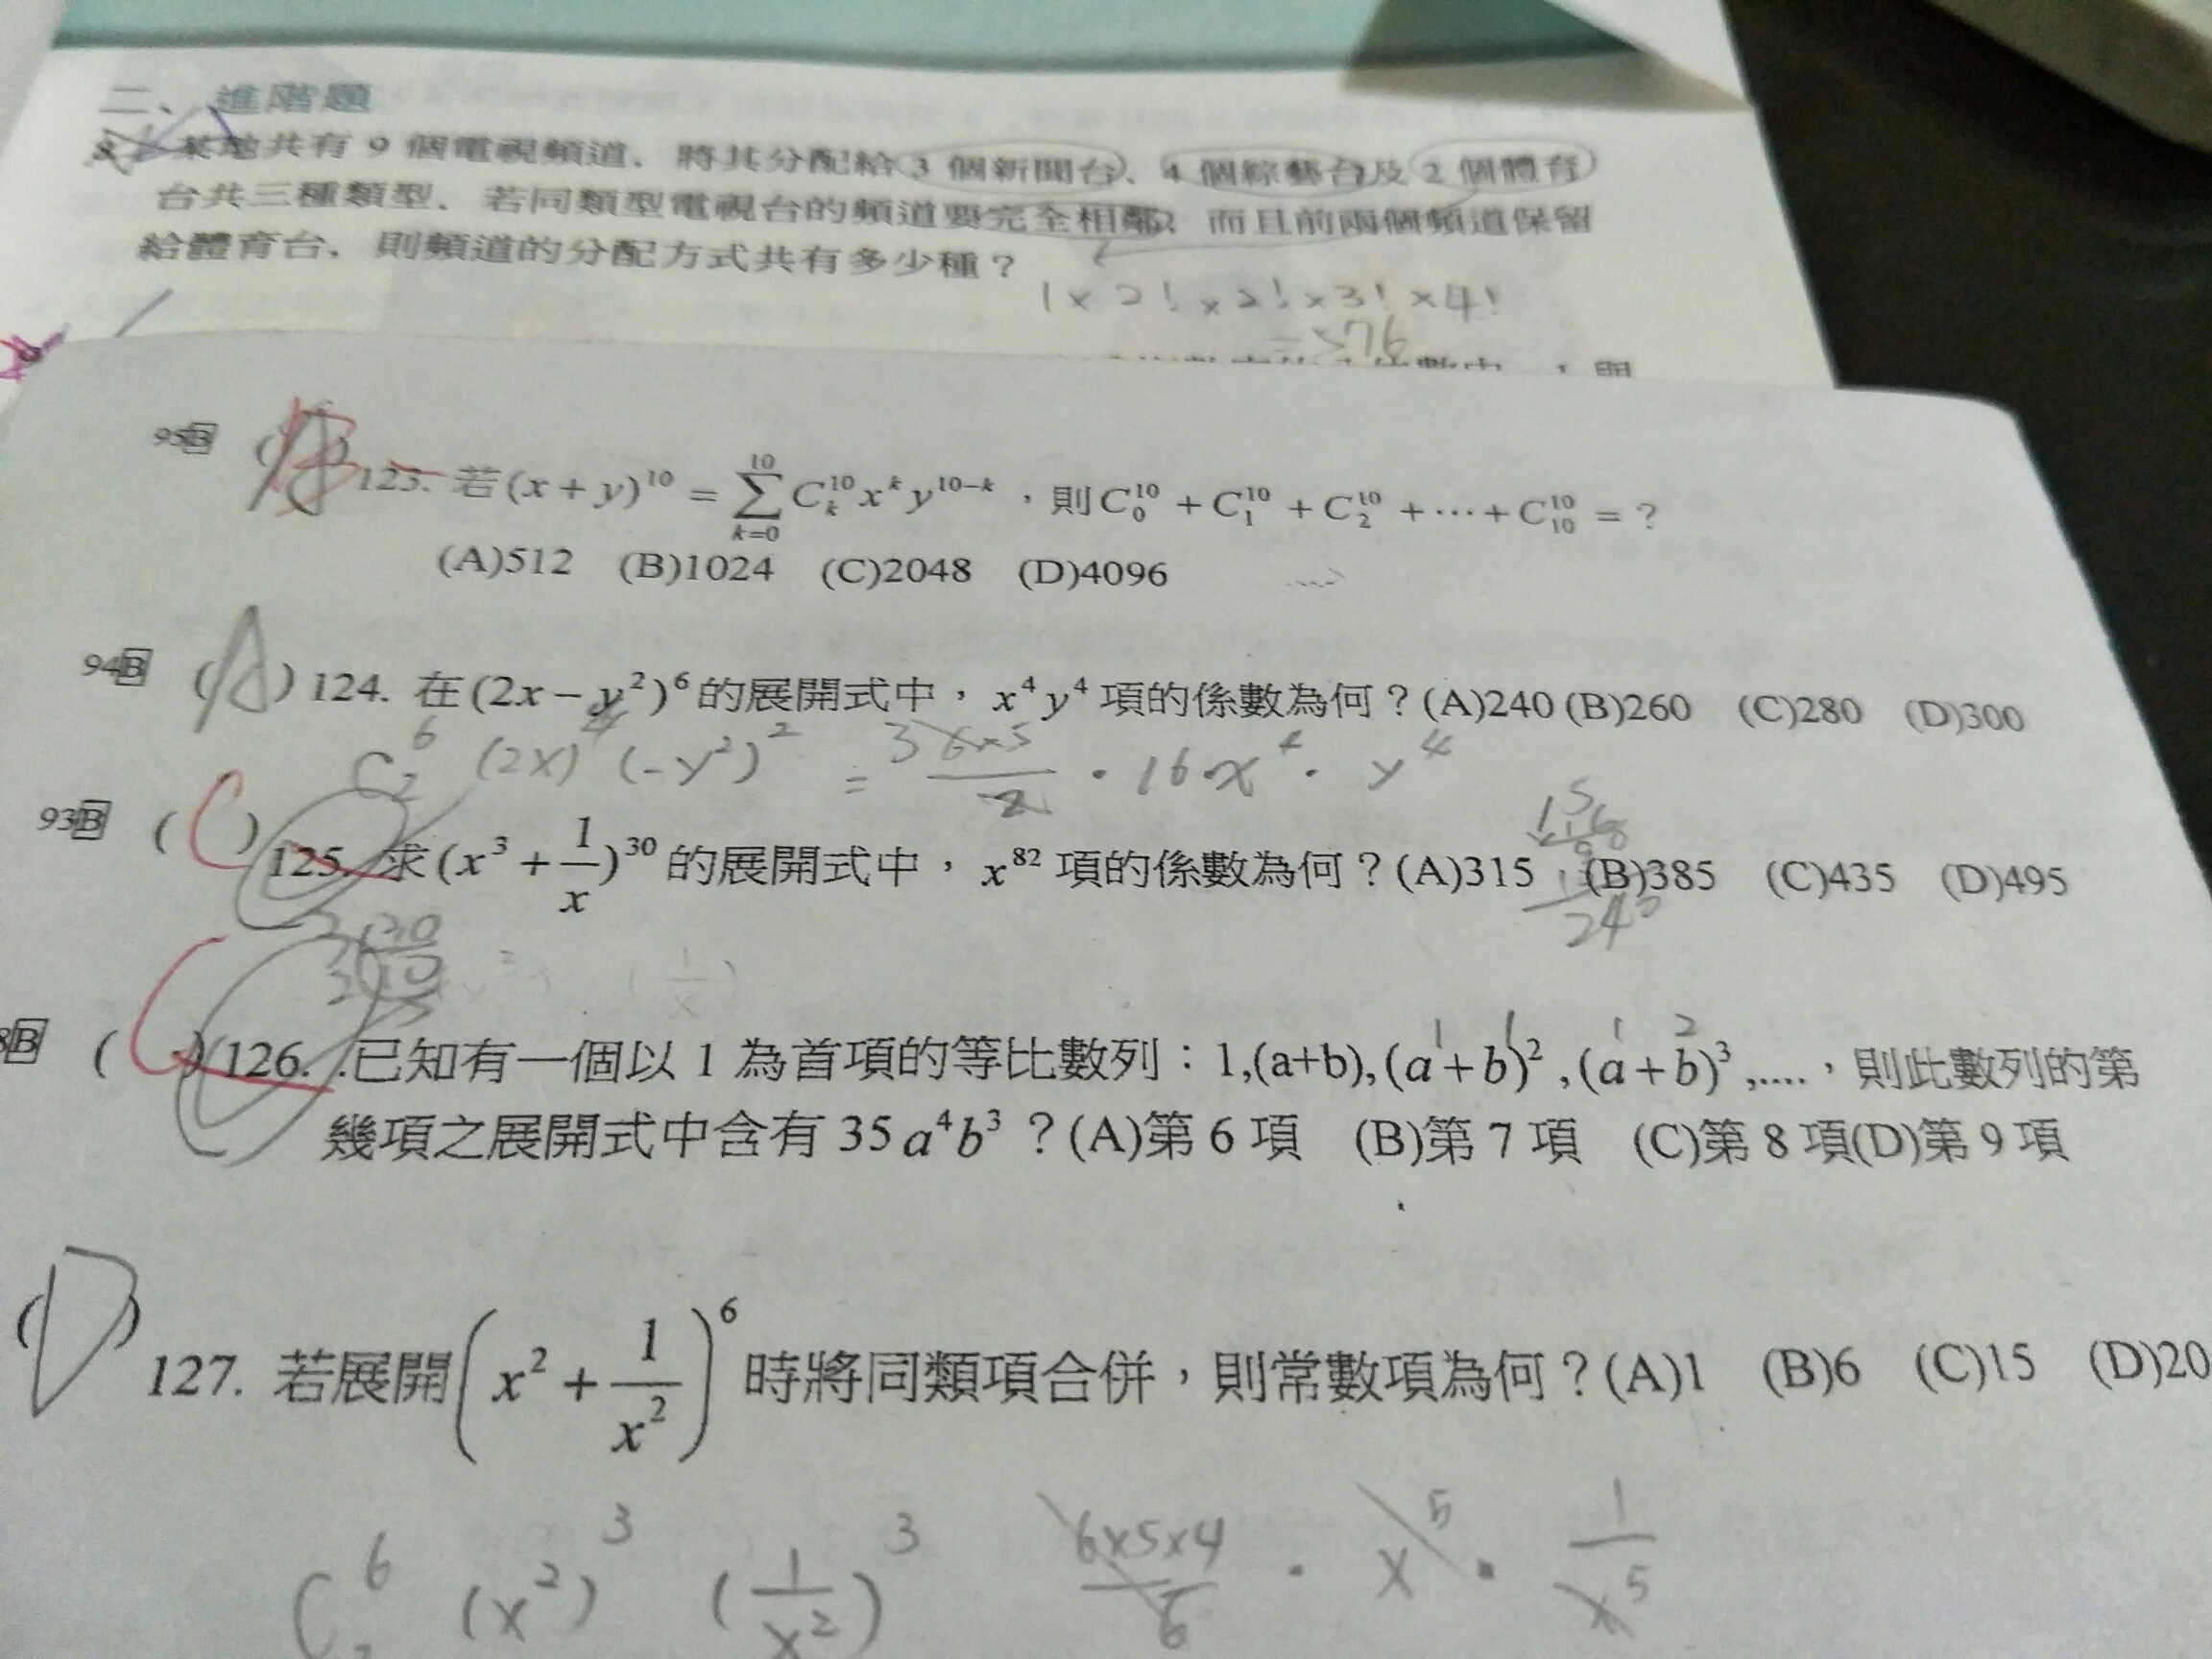 二、進階題
某地共有 9 個電視頻道，將其分配給 3 個新聞台、4 個綜藝台及 2 個體育
台共三種類型，若同類型電視台的頻道要完全相鄰，而且前兩個頻道保留
給體育台，則頻道的分配方式共有多少種？
1×2!×2!×3!×4!
=576
95B ( B ) 123. 若(x+y)^10 = Σ_{k=0}^{10} C_k^10 x^k y^{10-k}，則C_0^10 + C_1^10 + C_2^10 + ⋯ + C_10^10 = ?
(A)512 (B)1024 (C)2048 (D)4096
94B ( A ) 124. 在(2x − y²)⁶的展開式中，x⁴y⁴項的係數為何？(A)240 (B)260 (C)280 (D)300
C_2^6 (2x)^4 (-y²)² = 3 6×5/2 · 16·x⁴ · y⁴
93B ( C ) 125. 求(x³ + 1/x)^30 的展開式中，x^82 項的係數為何？(A)315 (B)385 (C)435 (D)495
240
8B ( C ) 126. 已知有一個以 1 為首項的等比數列：1,(a+b),(a+b)²,(a+b)³,....，則此數列的第
幾項之展開式中含有 35a⁴b³？(A)第 6 項 (B)第 7 項 (C)第 8 項(D)第 9 項
( D ) 127. 若展開(x² + 1/x²)⁶時將同類項合併，則常數項為何？(A)1 (B)6 (C)15 (D)20
C^6 (x²)³ (1/x²)³ 6×5×4/6 · x⁵ · 1/x⁵